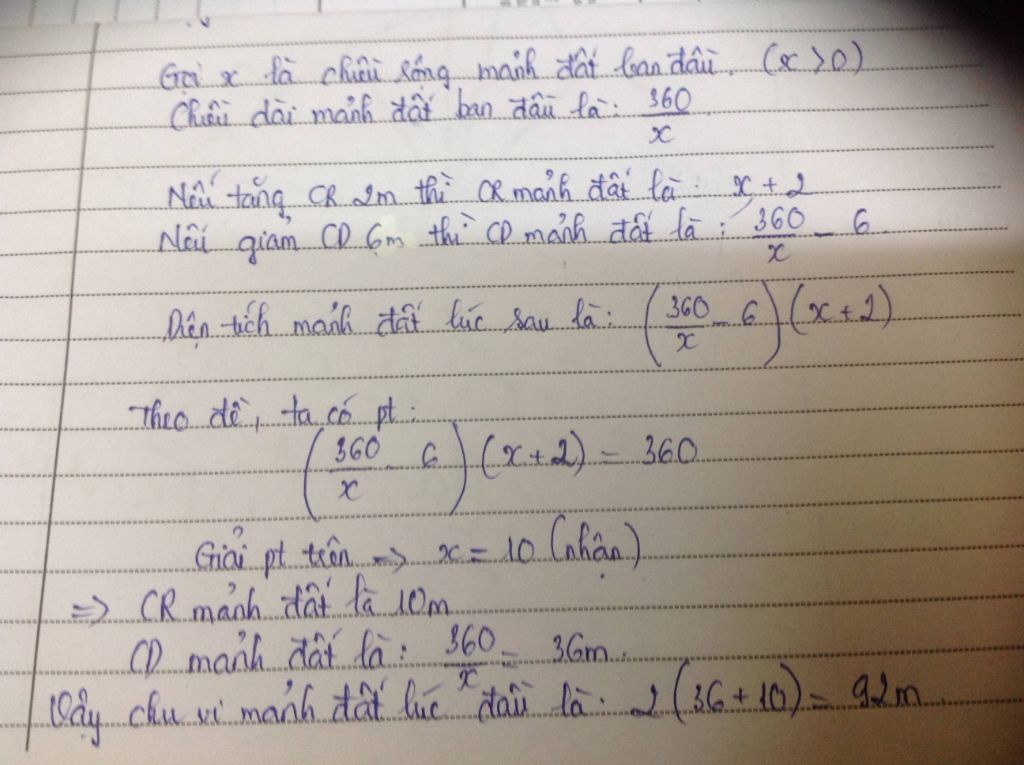 Gọi x là chiều rộng mảnh đất ban đầu. (x > 0)
Chiều dài mảnh đất ban đầu là: 360/x
Nếu tăng CR 2m thì CR mảnh đất là: x + 2
Nếu giảm CD 6m thì CD mảnh đất là: 360/x - 6
Diện tích mảnh đất lúc sau là: (360/x - 6)(x + 2)
Theo đề, ta có pt:
(360/x - 6)(x + 2) = 360
Giải pt trên => x = 10 (nhận)
=> CR mảnh đất là 10m
CD mảnh đất là: 360/x = 36m.
Vậy chu vi mảnh đất lúc đầu là: 2(36 + 10) = 92m